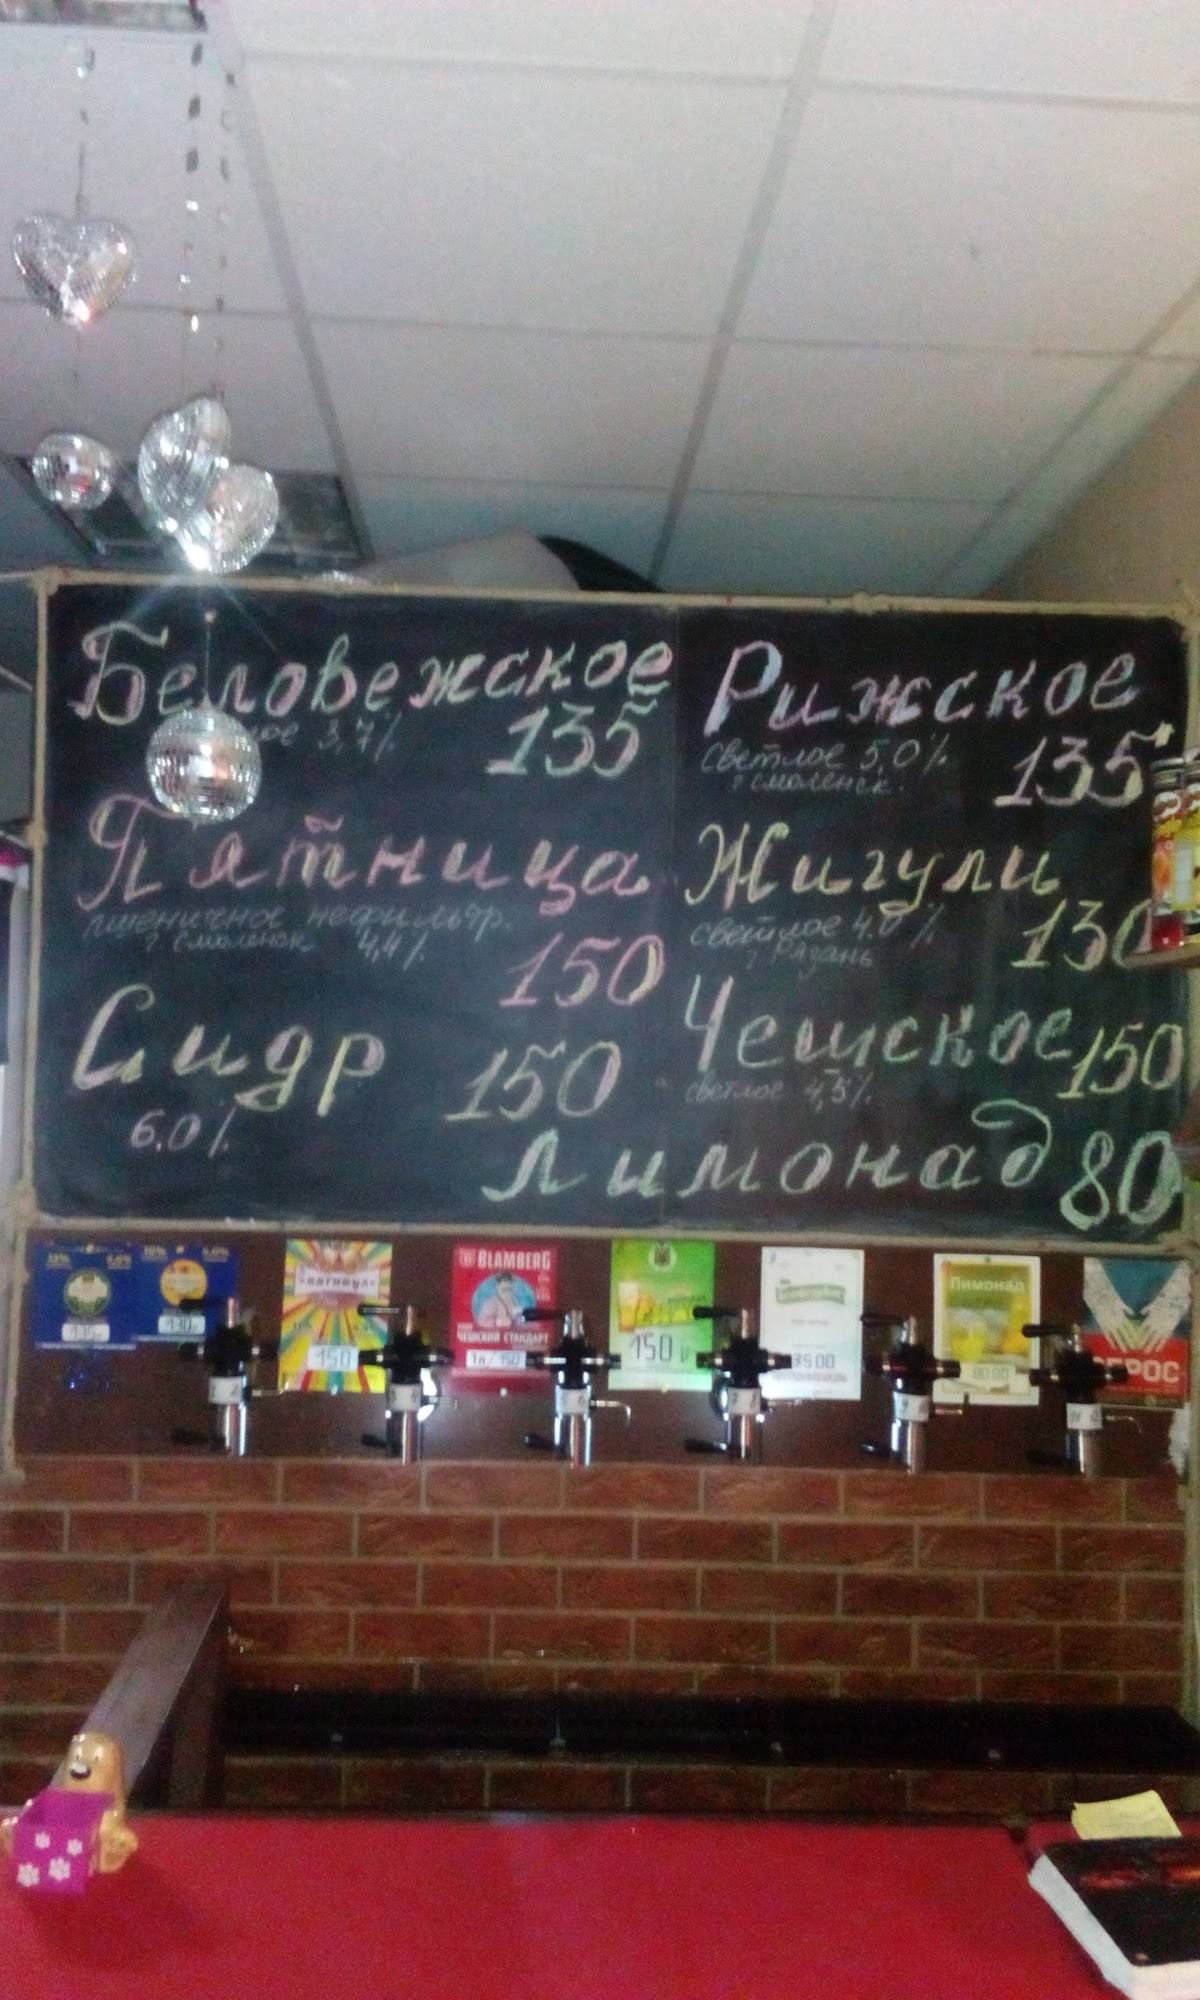 Беловежское
3,7%
135
Пятница
пшеничное нефильтр.
г Смоленск 4,4%
150
Сидр
150
6.0%
Рижское
светлое 5,0%
г Смоленск.
135
Жигули
светлое 4.0%
г Рязань
130
Чешское
150
светлое 4,5%
Лимонад 80
135
130
150
BLAMBERG
ЧЕШСКИЙ СТАНДАРТ
1л/150
150
Лимонад
80.00